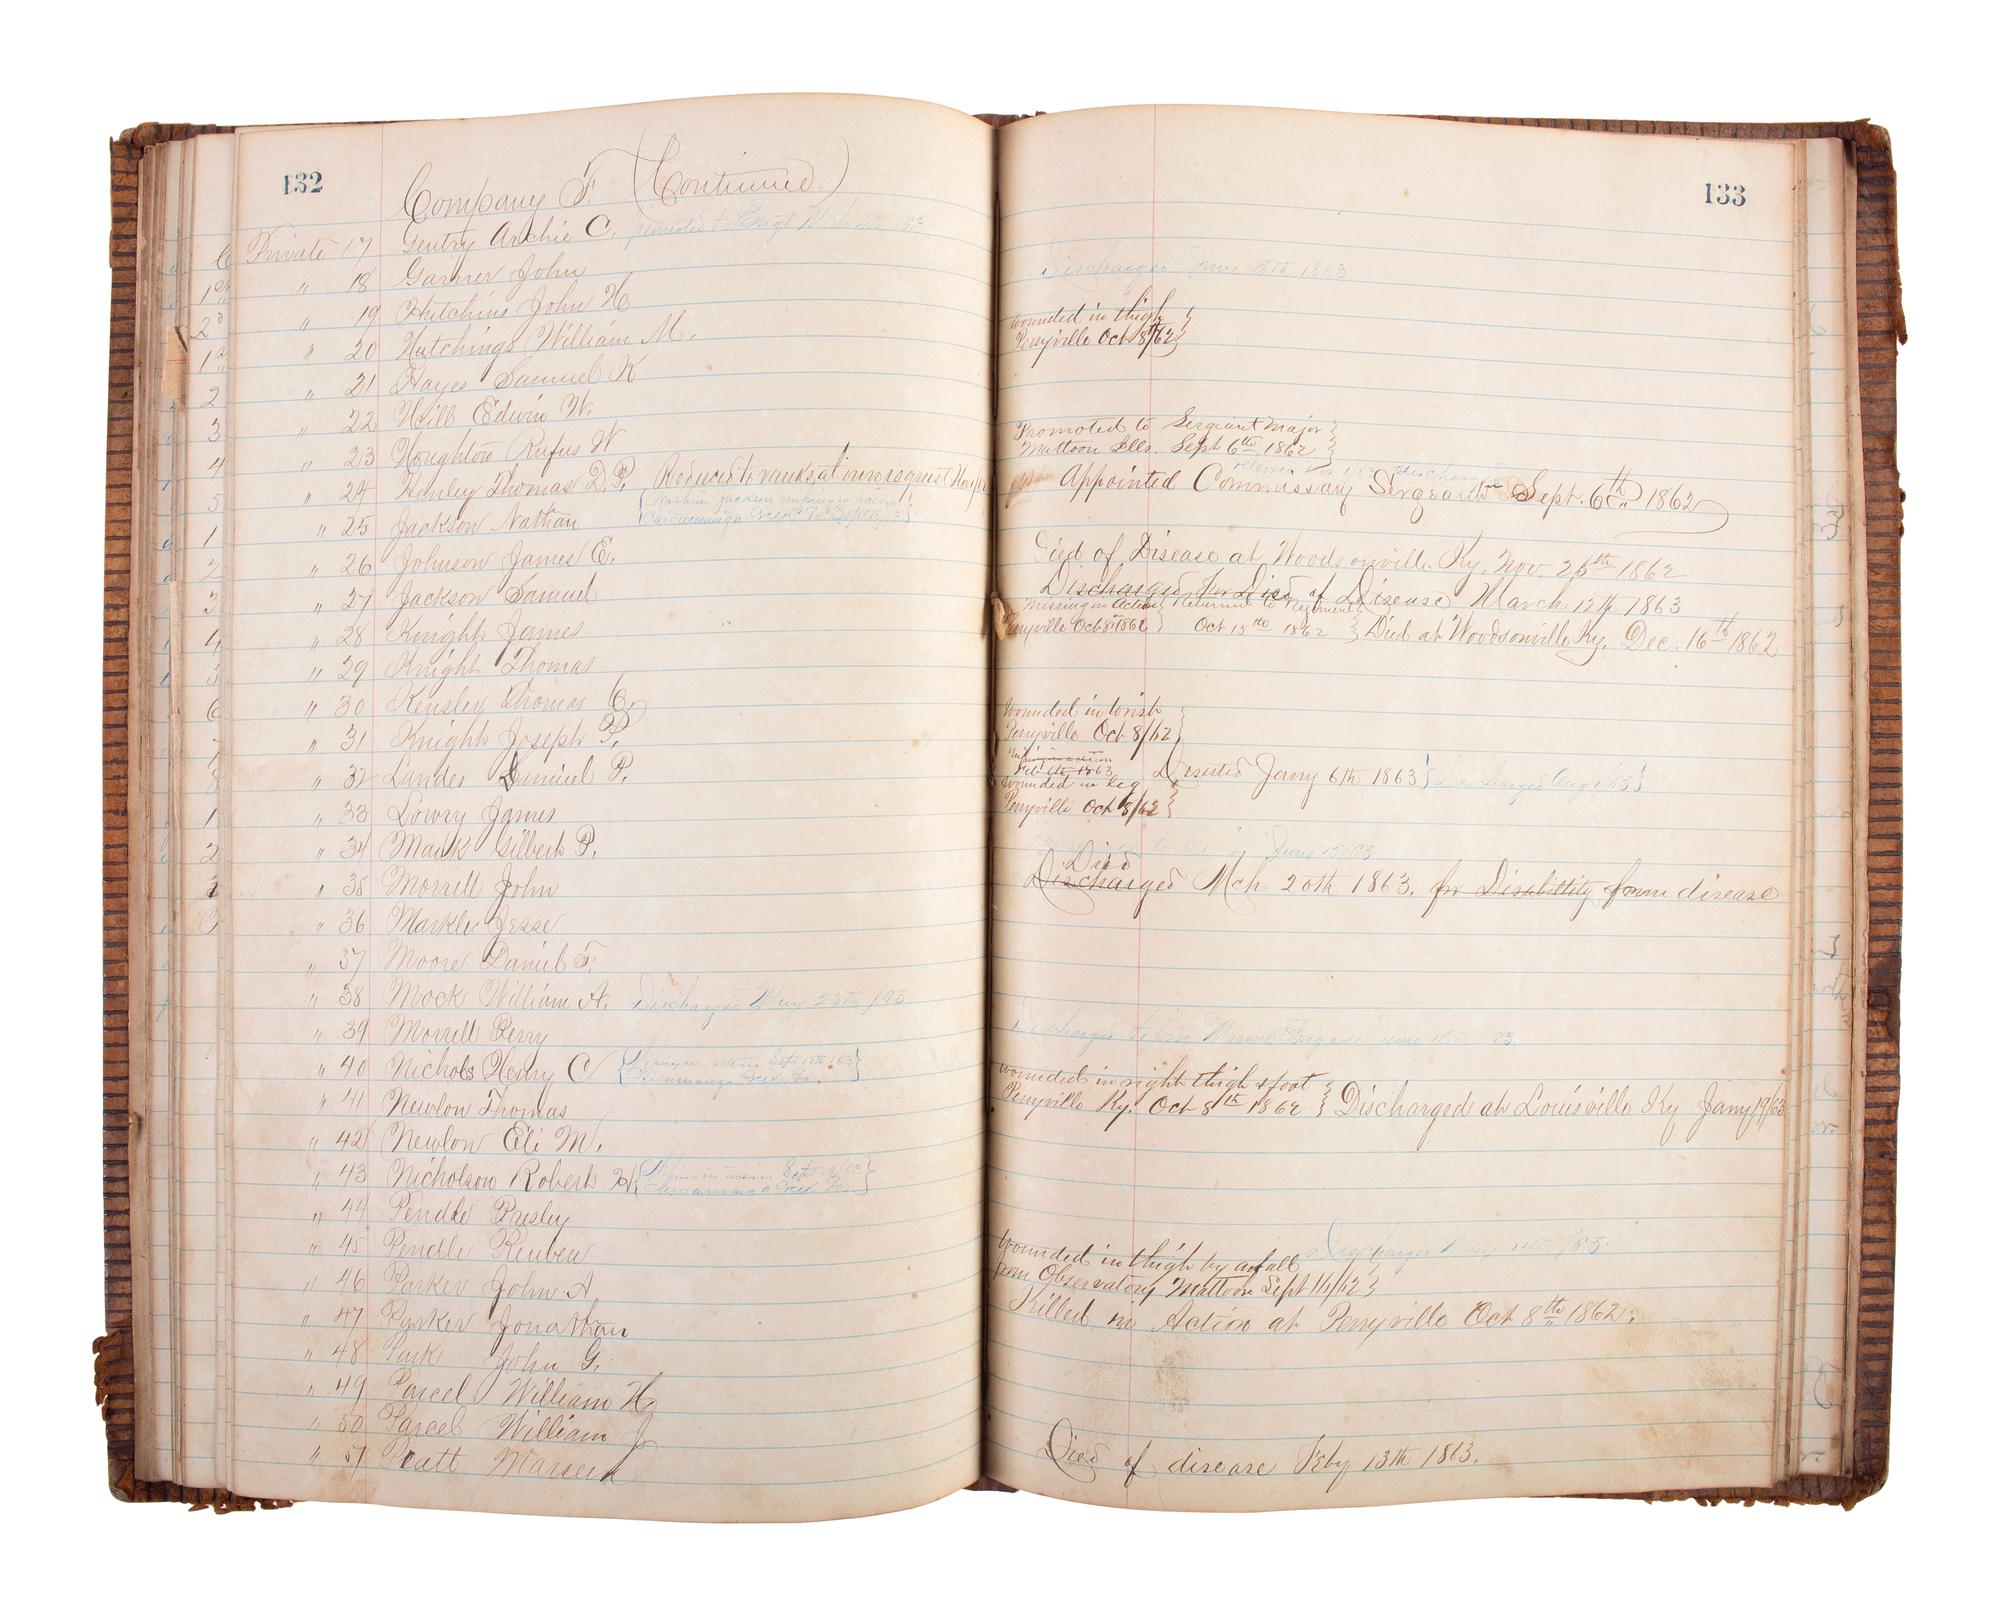 132
Company F. (Continued)
Private 17 Gentry Archie C. promoted to Sergt
" 18 Garner John
" 19 Hutchins John H
" 20 Hutchings William M.
" 21 Hayes Samuel K
" 22 Hill Edwin W.
" 23 Houghton Rufus W
" 24 Henley Thomas L. P. Reduced to ranks at own request
" 25 Jackson Nathan {Nathan Jackson missing in action
Chicamauga Creek Ga Sept 18/63}
" 26 Johnson James E.
" 27 Jackson Samuel
" 28 Knight James
" 29 Knight Thomas
" 30 Kensley Thomas C.
" 31 Knight Joseph P.
" 32 Landes Samuel P.
" 33 Lowry James
" 34 Mack Gilbert P.
" 35 Morrill John
" 36 Markle Jesse
" 37 Moore Daniel F.
" 38 Mock William A. Discharged May 28th /63
" 39 Morrill Perry
" 40 Nichols Henry C {Missing in action Sept 18th /63}
Chicamauga Creek Ga.
" 41 Newlon Thomas
" 42 Newlon Eli M.
" 43 Nicholson Robert H {Missing in action Sept 18/63}
Chicamauga Creek Ga
" 44 Pendle Presley
" 45 Pendle Reuben
" 46 Parker John A
" 47 Parker Jonathan
" 48 Park John G.
" 49 Parcel William H.
" 50 Parcel William J
" 51 Pratt
133
Discharged June 1863
wounded in thigh
Perryville Oct 8/62
Promoted to Sergeant Major
Mattoon Ills. Sept 6th 1862
Appointed Commissary Sergeant Sept. 6th 1862
Died of Disease at Woodsonville Ky. Nov. 26th 1862
Discharged for Died of Disease March 12th 1863
Missing in Action Returned to Regiment
Perryville Oct 8 1862 } Oct 15th 1862 } Died at Woodsonville Ky. Dec. 16th 1862
wounded in wrist
Perryville Oct 8/62
Missing in action
1863 Deserted Jany 6th 1863 Discharged Aug /63
wounded in leg
Perryville Oct 8/62
June 15/63
Died
Discharged Mch 20th 1863. for Disability from disease
Discharged to join Marine Brigade June 15th /63.
wounded in right thigh & foot
Perryville Ky. Oct 8th 1862 } Discharged at Louisville Ky Jany 19/63
Discharged May /63
wounded in thigh by a fall
from Observatory Mattoon Sept 16/62
Killed in Action at Perryville Oct 8th 1862.
Died of disease Feby 13th 1863.